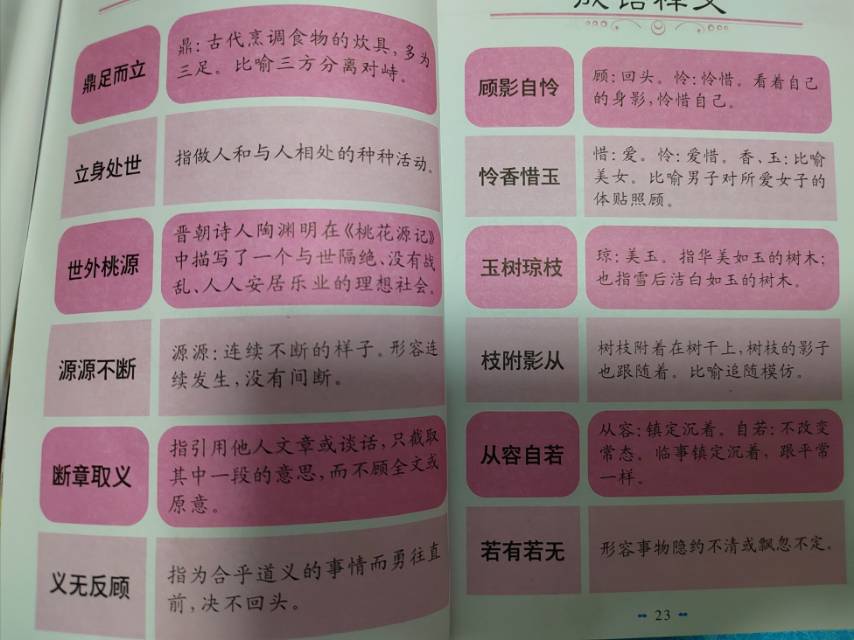 鼎足而立
鼎：古代烹调食物的炊具，多为
三足。比喻三方分离对峙。
立身处世
指做人和与人相处的种种活动。
世外桃源
晋朝诗人陶渊明在《桃花源记》
中描写了一个与世隔绝、没有战
乱、人人安居乐业的理想社会。
源源不断
源源：连续不断的样子。形容连
续发生，没有间断。
断章取义
指引用他人文章或谈话，只截取
其中一段的意思，而不顾全文或
原意。
义无反顾
指为合乎道义的事情而勇往直
前，决不回头。
成语释义
顾影自怜
顾：回头。怜：怜惜。看着自己
的身影，怜惜自己。
怜香惜玉
惜：爱。怜：爱惜。香、玉：比喻
美女。比喻男子对所爱女子的
体贴照顾。
玉树琼枝
琼：美玉。指华美如玉的树木；
也指雪后洁白如玉的树木。
枝附影从
树枝附着在树干上，树枝的影子
也跟随着。比喻追随模仿。
从容自若
从容：镇定沉着。自若：不改变
常态。临事镇定沉着，跟平常
一样。
若有若无
形容事物隐约不清或飘忽不定。
23